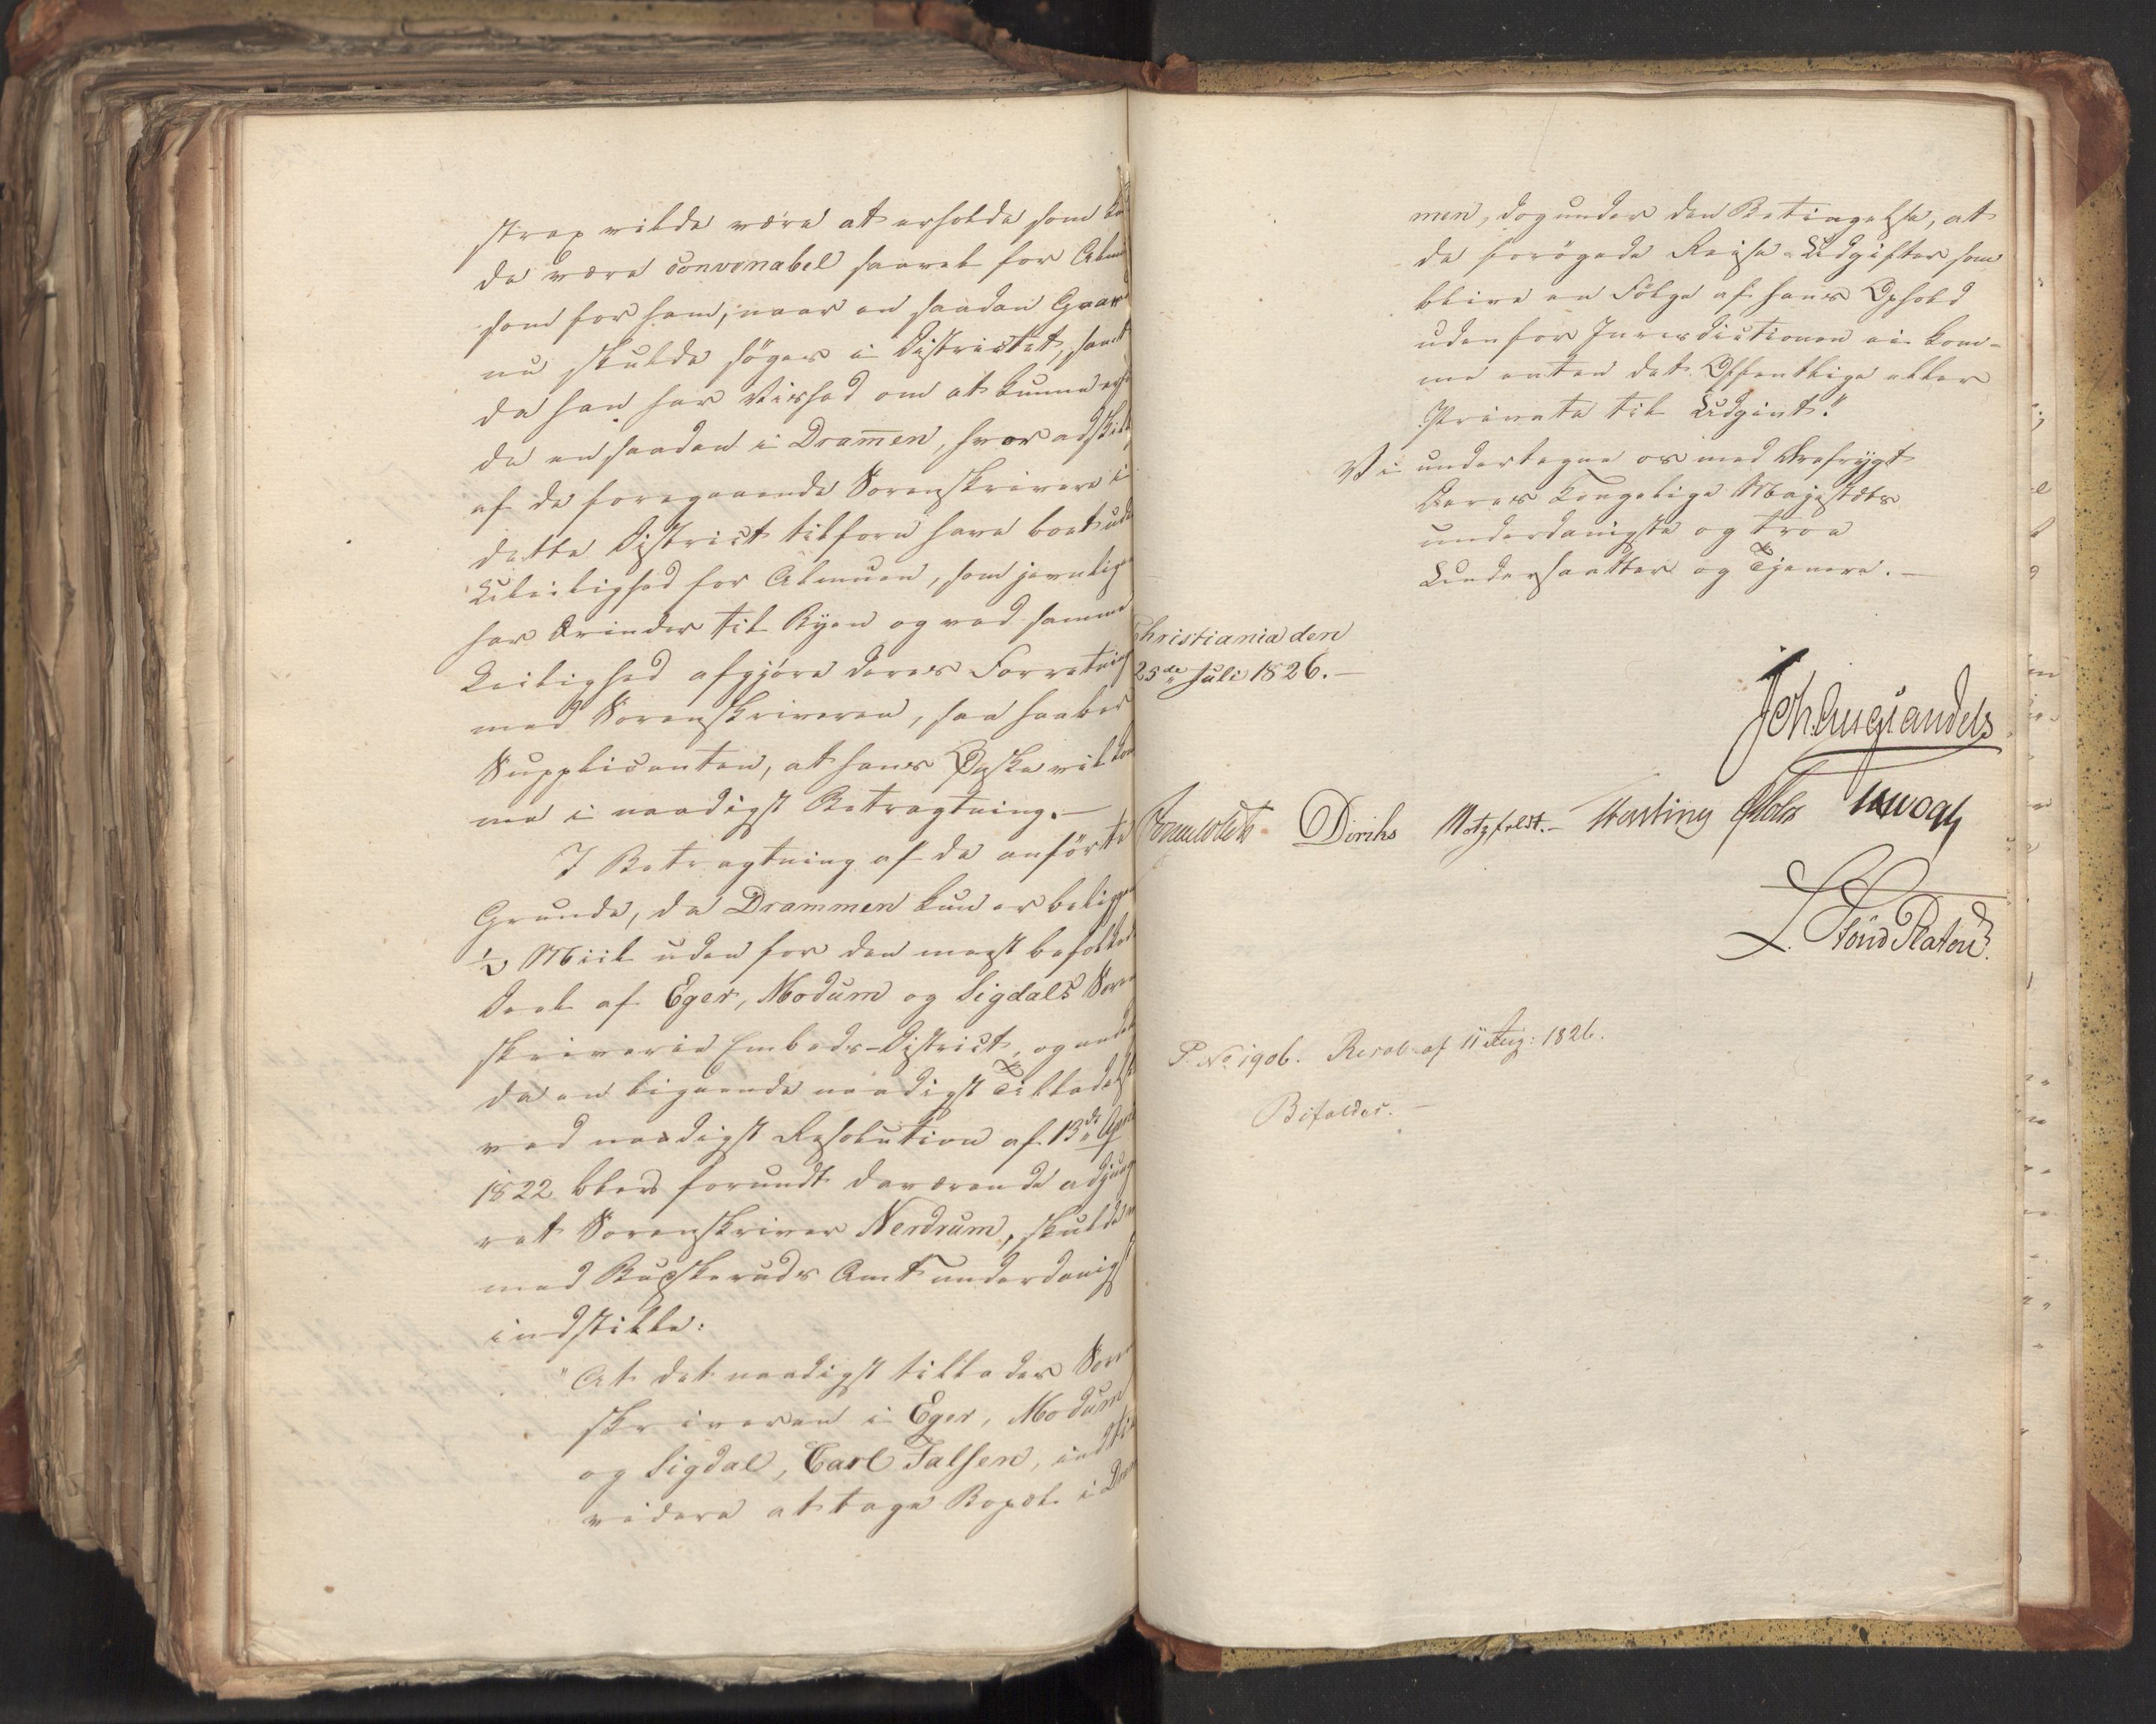 strax vilde være at erholde som
de være convenabel saavel for Almu
som for ham, naar en saadan Gaar
nu skulde søges i Districtet, samt
da han har Vished om at kunne
de en saadan i Dram̅en, hvor adskil
af de foregaaende Sorenskrivere i
dette District tilforn have boet ude
Uleilighed for Almuen, som jevnlig
har Ærinder til Byen og ved samme
Leilighed afgjøre deres Forretning
med Sorenskriveren, saa haaber
Supplicanten, at hans Ønske vil kom
me i naadigst Betragtning.—
I Betragtning af de anførte
Grunde, da Drammen kun er beligge
½ Miil uden for den meest befolkede
Deel af Eger, Modum og Sigdals Soren
skriverie Embeds-District, og
da en lignende naadigst Tilladelse
ved naadigst Resolution af 13de April
1822 blev forundt daværende adjung
ret Sorenskriver Nerdrum, skulde
med Buskeruds Amt underdanigst
indstille:
"At det naadigst tillades Soren
skriveren i Eger, Modum
og Sigdal, Carl Falsen, indtil
videre at tage Bopæl i Dram
men, dog under den Betingelse, at
de forøgede Reise-Udgifter som
blive en Følge af hans Ophold
udenfor Jurisdictionen ei kom-
me enten det Offentlige eller
Private til Udgivt."
Vi undertegne os med Ærefrygt
Deres Kongelige Majestæts
underdanigste og troe
Undersaatter og Tjenere.—
Christiania den
25de Juli 1826.—
Joh. Aug. Sandels
Sommerfeldt Diriks Motzfeldt.— Hasting JHVogt
L. Stoud Platou
P. No 1906. Resol. af 11 Aug: 1826.
Bifaldes.—